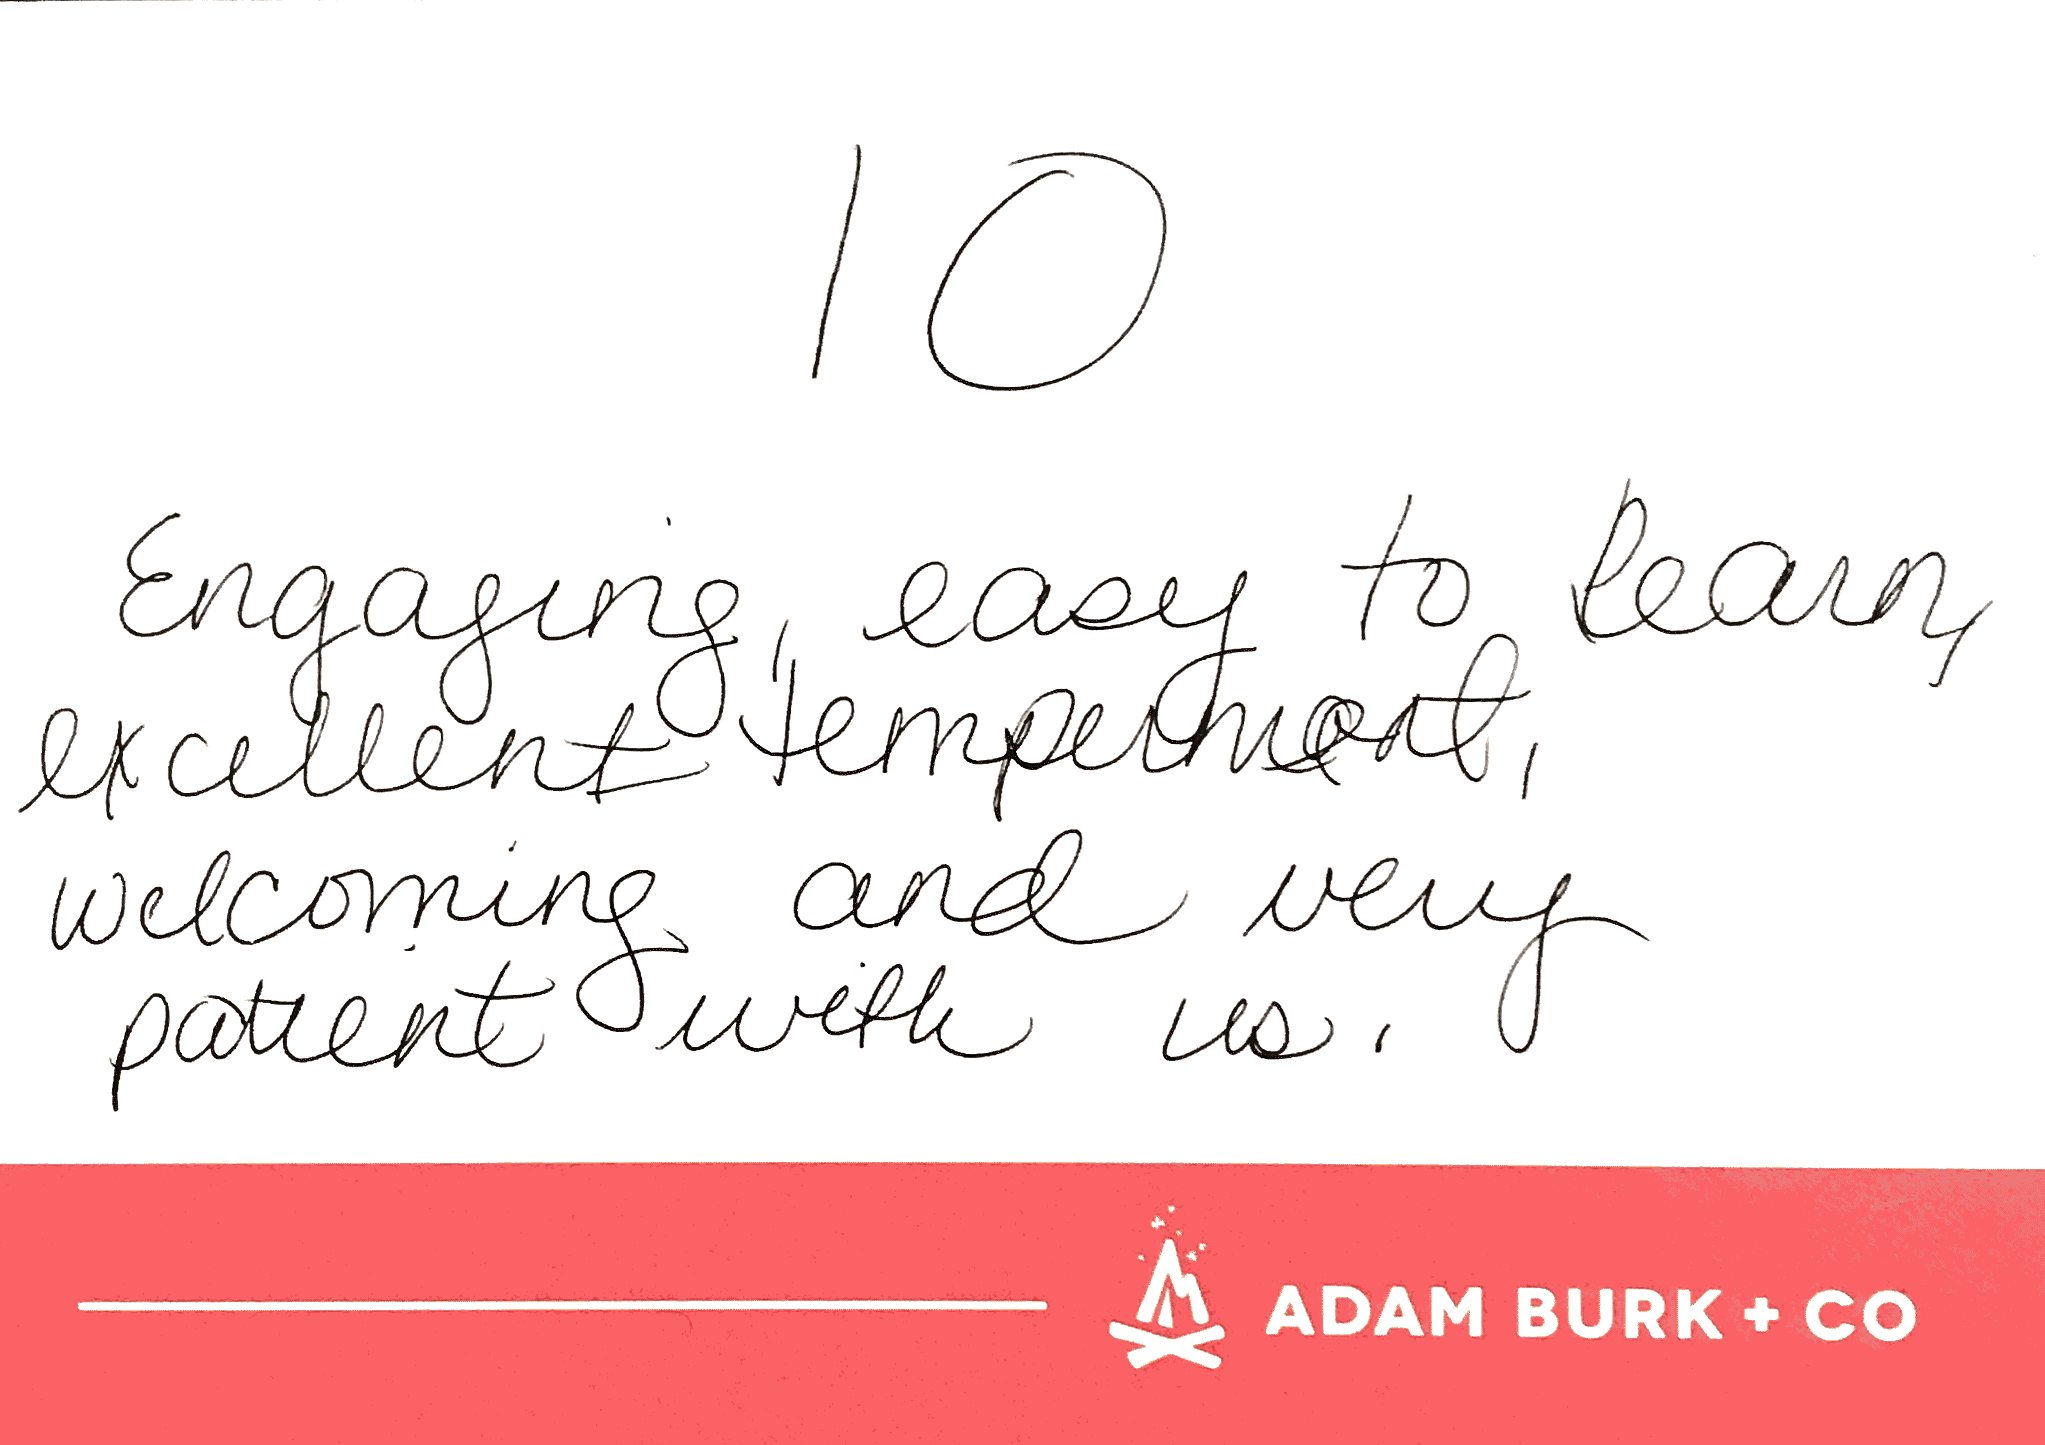 10
Engaging, easy to learn,
excellent temperment,
welcoming and very
patient with us.
ADAM BURK + CO